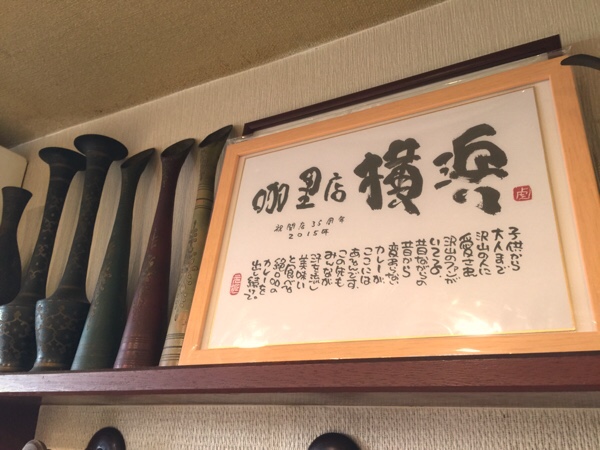 咖喱店 横浜
祝開店35周年
2015年
子供から
大人まで
沢山の人に
愛され
沢山のファンが
いてる
昔ながらの
昔から
変わらない
カレーが
ここには
あるのです
この先も
みんなが
汗を流し
美味い
と食べる
絶品の
カレーを
出し続けて。